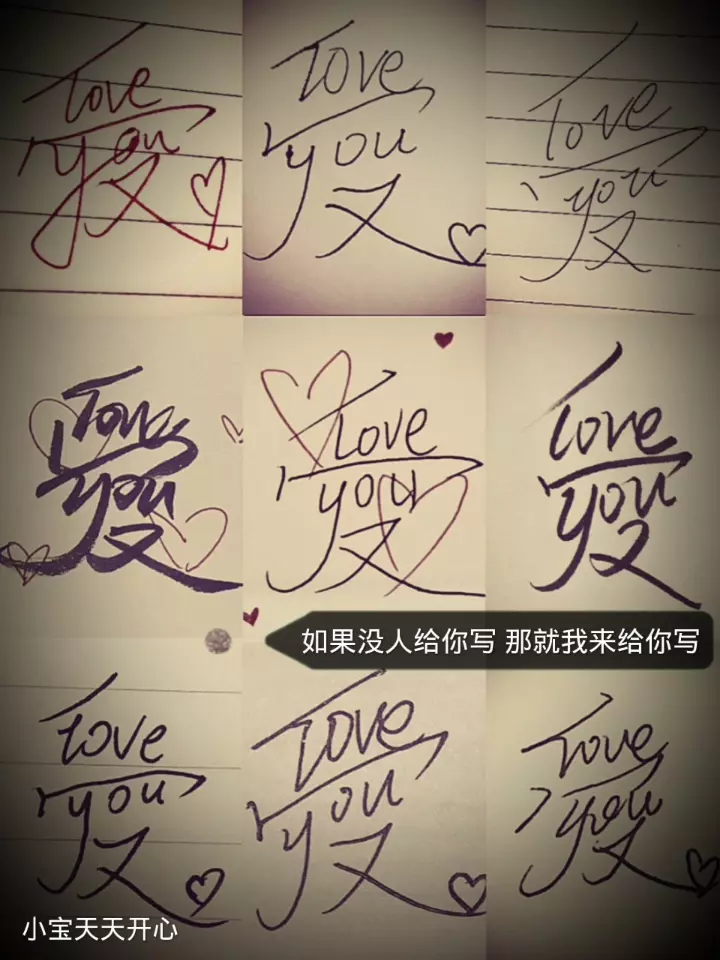 love
you
又
love
you
又
love
you
又
love
you
又
love
you
又
love
you
又
如果没人给你写 那就我来给你写
love
you
又
love
you
又
love
you
又
小宝天天开心